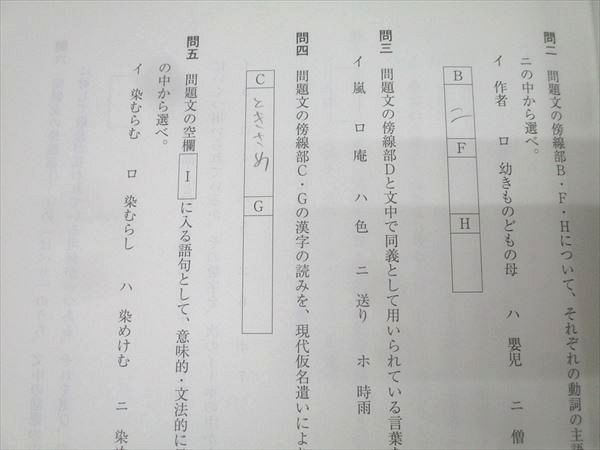 問二 問題文の傍線部B・F・Hについて、それぞれの動詞の主語
ニの中から選べ。
イ 作者 ロ 幼きものどもの母 ハ 嬰児 ニ 僧
B ニ F H
問三 問題文の傍線部Dと文中で同義として用いられている言葉
イ 嵐 ロ 庵 ハ 色 ニ 送り ホ 時雨
問四 問題文の傍線部C・Gの漢字の読みを、現代仮名遣いによ
C ときさめ G
問五 問題文の空欄 I に入る語句として、意味的・文法的に
の中から選べ。
イ 染むらむ ロ 染むらし ハ 染めけむ ニ 染